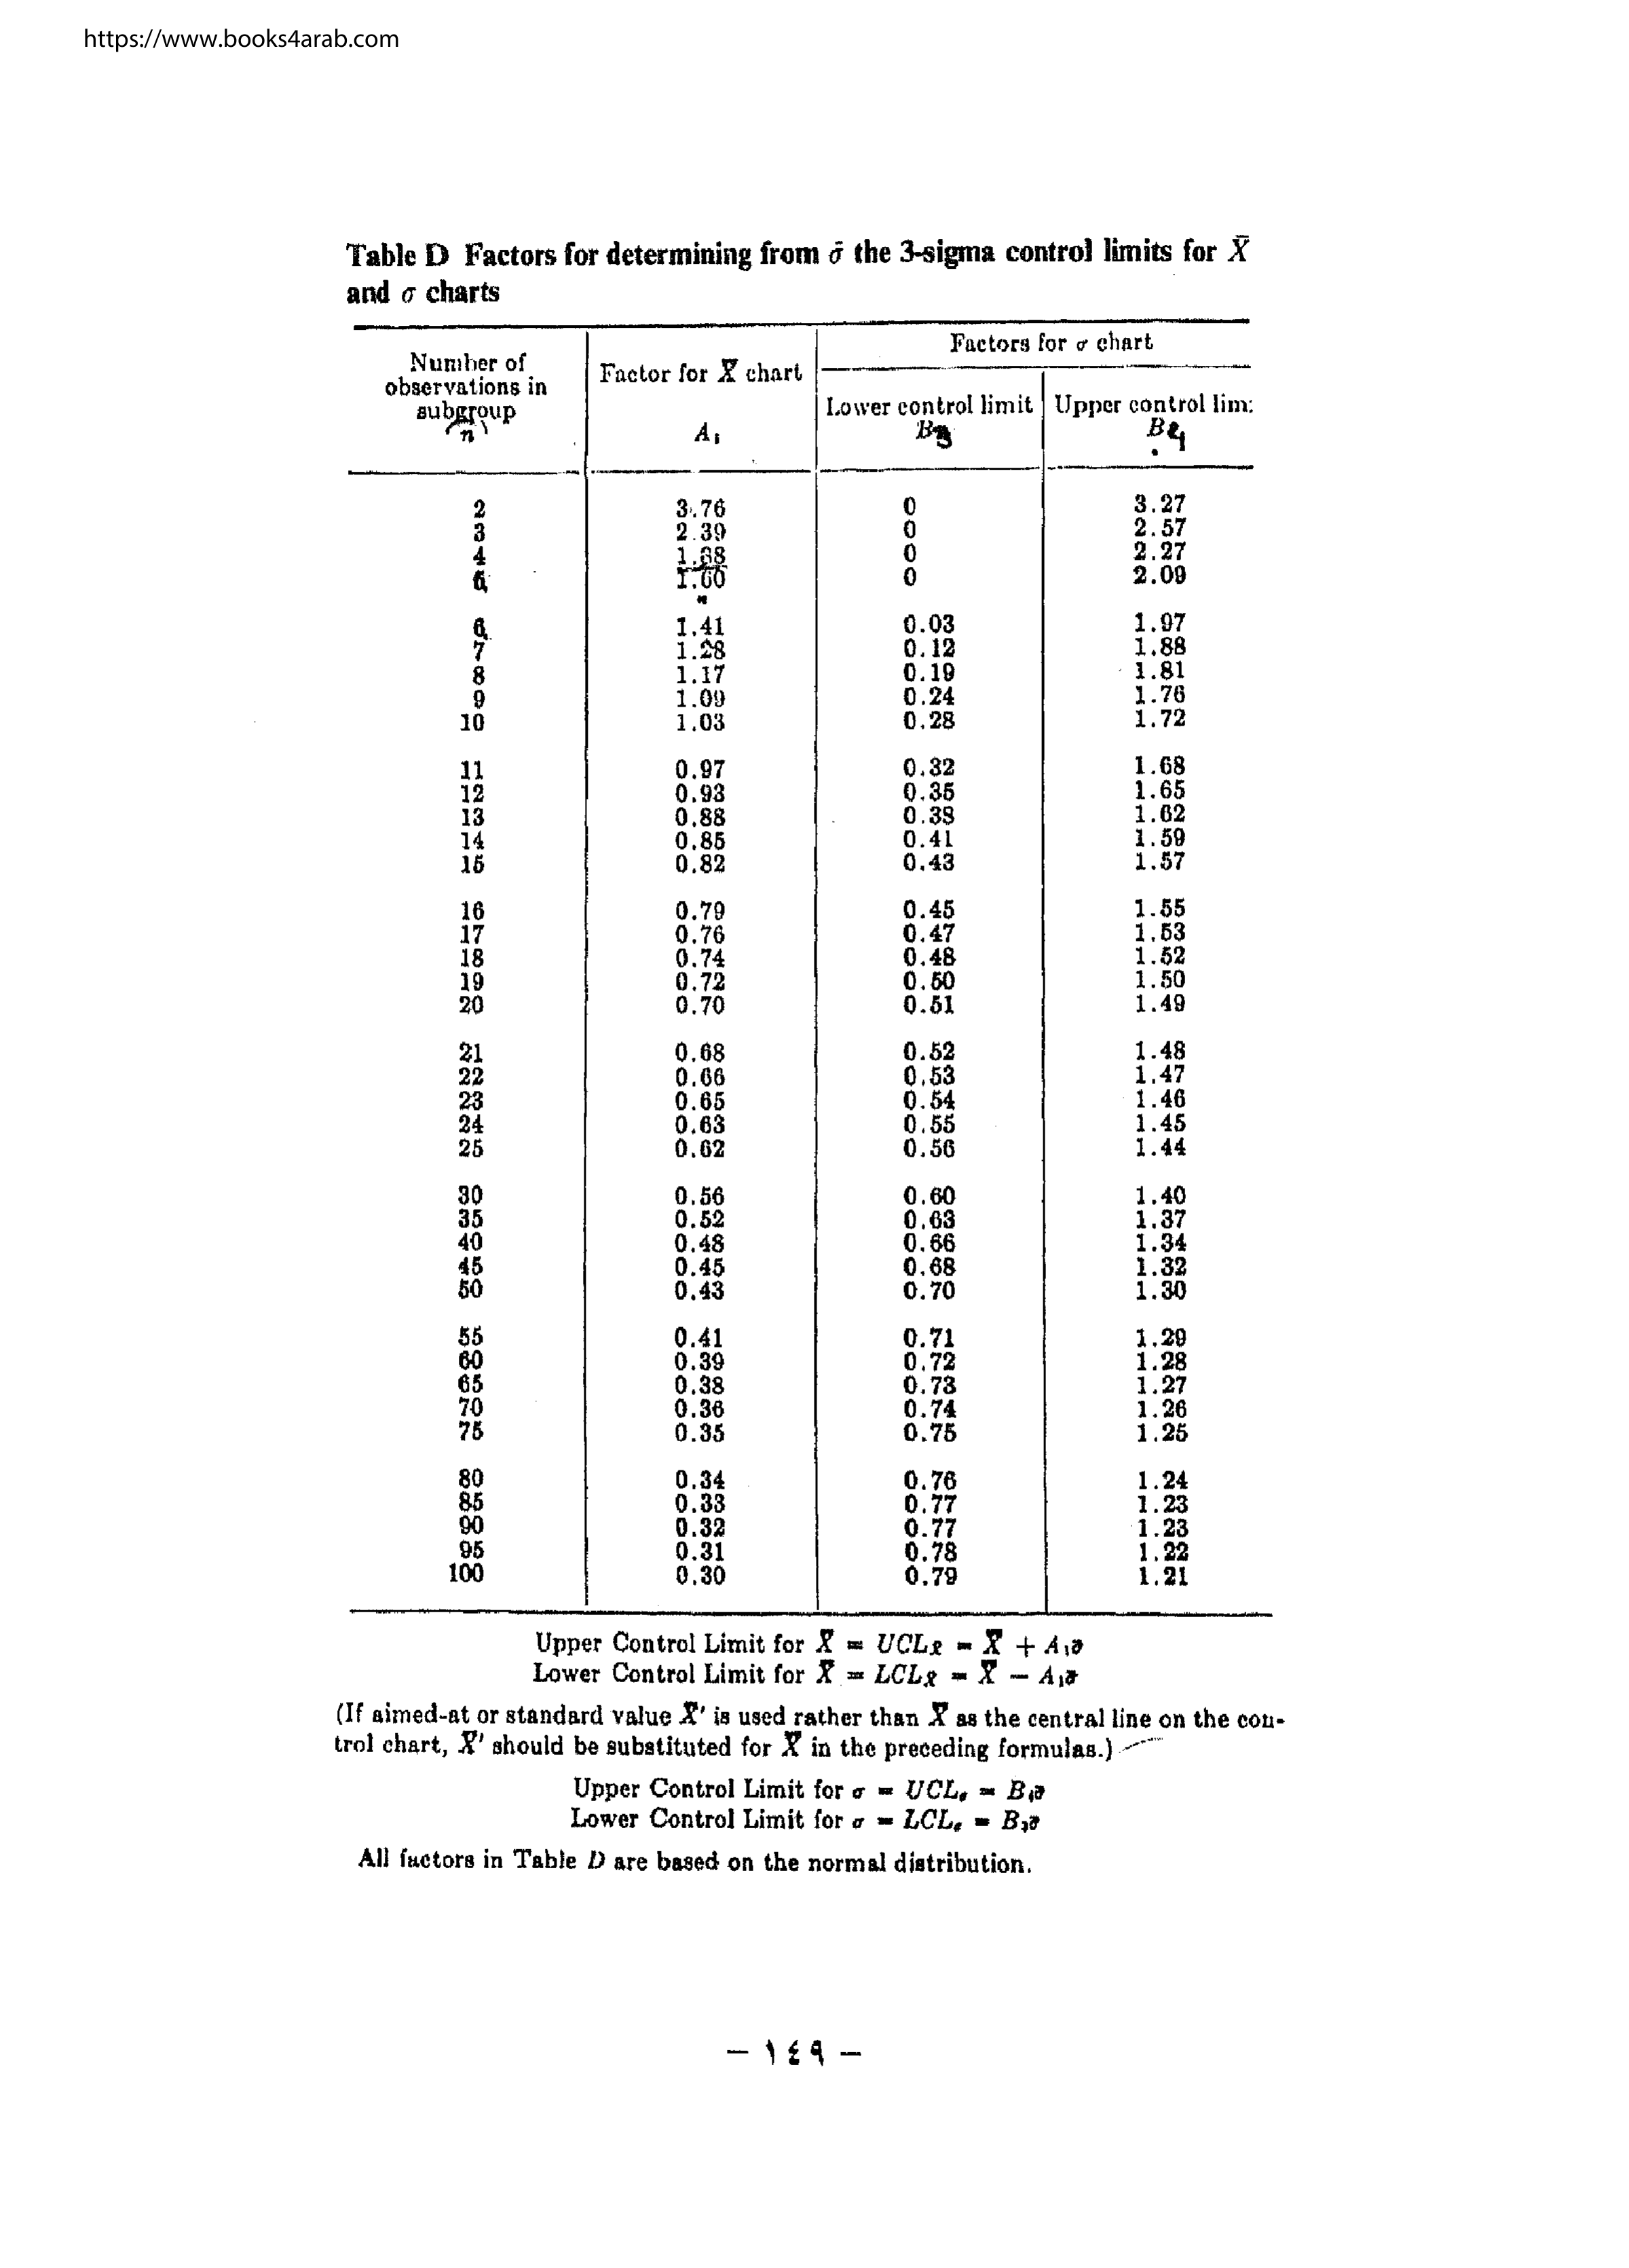 https://www.books4arab.com
Table D Factors for determining from σ̄ the 3-sigma control limits for X̄
and σ charts
Factors for σ chart
Number of
observations in
subgroup
n
Factor for X̄ chart
A₁
Lower control limit
B₃
Upper control lim
B₄
2 3.76 0 3.27
3 2.39 0 2.57
4 1.88 0 2.27
5 1.60 0 2.09
6 1.41 0.03 1.97
7 1.28 0.12 1.88
8 1.17 0.19 1.81
9 1.09 0.24 1.76
10 1.03 0.28 1.72
11 0.97 0.32 1.68
12 0.93 0.35 1.65
13 0.88 0.38 1.62
14 0.85 0.41 1.59
15 0.82 0.43 1.57
16 0.79 0.45 1.55
17 0.76 0.47 1.53
18 0.74 0.48 1.52
19 0.72 0.50 1.50
20 0.70 0.51 1.49
21 0.68 0.52 1.48
22 0.66 0.53 1.47
23 0.65 0.54 1.46
24 0.63 0.55 1.45
25 0.62 0.56 1.44
30 0.56 0.60 1.40
35 0.52 0.63 1.37
40 0.48 0.66 1.34
45 0.45 0.68 1.32
50 0.43 0.70 1.30
55 0.41 0.71 1.29
60 0.39 0.72 1.28
65 0.38 0.73 1.27
70 0.36 0.74 1.26
75 0.35 0.75 1.25
80 0.34 0.76 1.24
85 0.33 0.77 1.23
90 0.32 0.77 1.23
95 0.31 0.78 1.22
100 0.30 0.79 1.21
Upper Control Limit for X̄ = UCLx̄ = X̿ + A₁σ̄
Lower Control Limit for X̄ = LCLx̄ = X̿ − A₁σ̄
(If aimed-at or standard value X̄′ is used rather than X̿ as the central line on the con-
trol chart, X̄′ should be substituted for X̿ in the preceding formulas.)
Upper Control Limit for σ = UCLσ = B₄σ̄
Lower Control Limit for σ = LCLσ = B₃σ̄
All factors in Table D are based on the normal distribution.
— ١٤٩ —